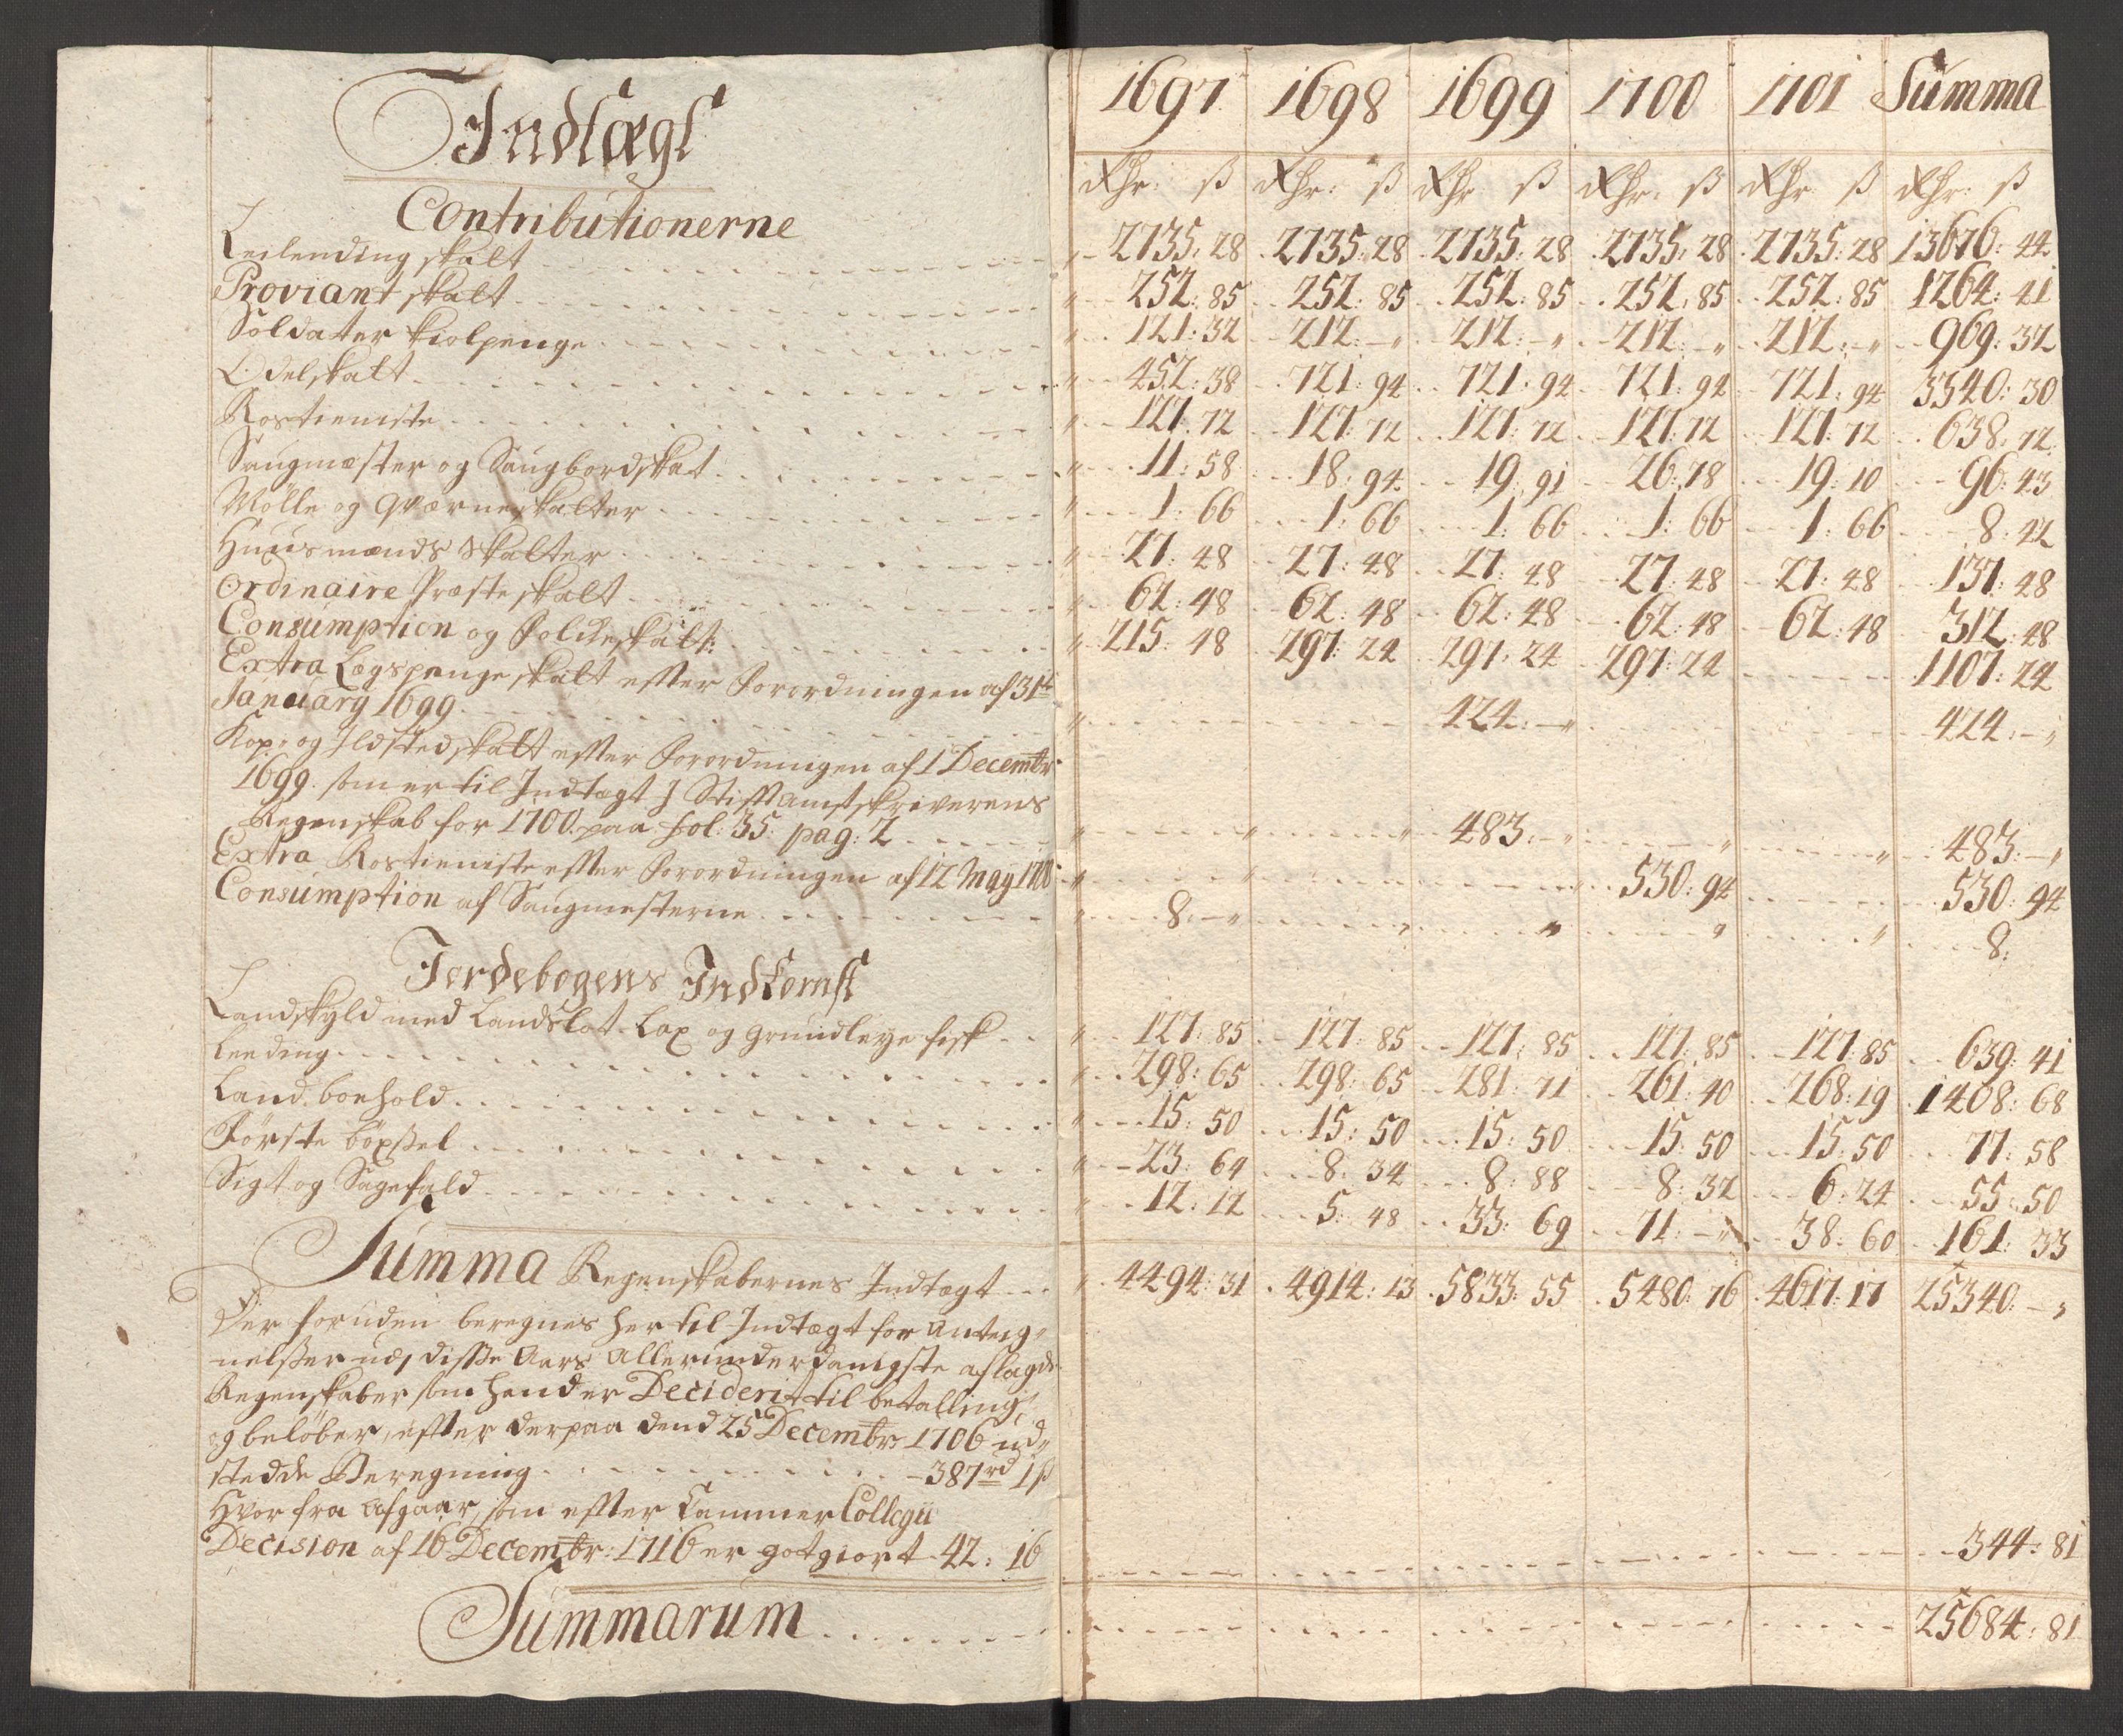 Indtægt
1697 1698 1699 1700 1701 Summa
Rdhr: ß Rdhr: ß Rdhr ß Rdhr: ß Rdhr ß Rdhr: ß
Contributionerne
Leilending skatt 2735: 28 2735: 28 2735: 28 2735: 28 2735: 28 13676: 44
Proviant skatt 252: 85 252: 85 252: 85 252: 85 252: 85 1264: 41
Soldater Kiolpenge 121: 32 212: – 212: – 212: – 212: – 969: 32
Odelskatt 452: 38 721: 94 721: 94 721: 94 721: 94 3340: 30
Rostieniste 127: 72 127: 72 127: 72 127: 72 127: 72 638: 72
Saugmæster og Saugbordskat 11: 58 18: 94 19: 91 26: 78 19: 10 96: 43
Mölle og Qværneskatter 1: 66 1: 66 1: 66 1: 66 1: 66 8: 42
Huusmænds Skatter 27: 48 27: 48 27: 48 27: 48 27: 48 137: 48
Ordinaire Præste skatt 62: 48 62: 48 62: 48 62: 48 62: 48 312: 48
Consumption og Folckeskatt: 215: 48 297: 24 297: 24 297: 24 1107: 24
Extra Legspenge skatt efter Forordningen af 31te
January 1699 424: – 424: –
Kop- og Ildstedskatt efter Forordningen af 1 Decembr
1699. som er til Indtægt J Stift Amtskriverens
Regenskab for 1700. paa fol: 35. pag: 2 483: – 483: –
Extra Rostieniste efter Forordningen af 12 May 1700 530: 94 530: 94
Consumption af Saugmesterne 8: – 8:
Jordebogens Indkomst
Landskyld med Landslot-Lax og grundleye fisk 127: 85 127: 85 127: 85 127: 85 127: 85 639: 41
Leeding 298: 65 298: 65 281: 71 261: 40 268: 19 1408: 68
Land boehold 15: 50 15: 50 15: 50 15: 50 15: 50 77: 58
Förste böxßel 23: 64 8: 34 8: 88 8: 32 6: 24 55: 50
Sigt og Sagefald 12: 12 5: 48 33: 69 71: – 38: 60 161: 33
Summa Regenskabernes Indtægt 4494: 31 4914: 13 5833: 55 5480: 76 4617: 17 25340: –
Der foruden beregnes her til Indtægt for Anteg-
nelßer ved disße Aars Allerunderdanigste aflagde
Regenskaber som hand er Deciderit til betalling,
og beløber, efter derpaa dend 25 Decembr 1706 ud-
stedde Beregning 387 rd 1 ß
Hvor fra afgaar, som efter Cammer Collegii
Decision af 16 Decembr: 1716 er gotgiort 42: 16 344: 81
Summarum 25684: 81